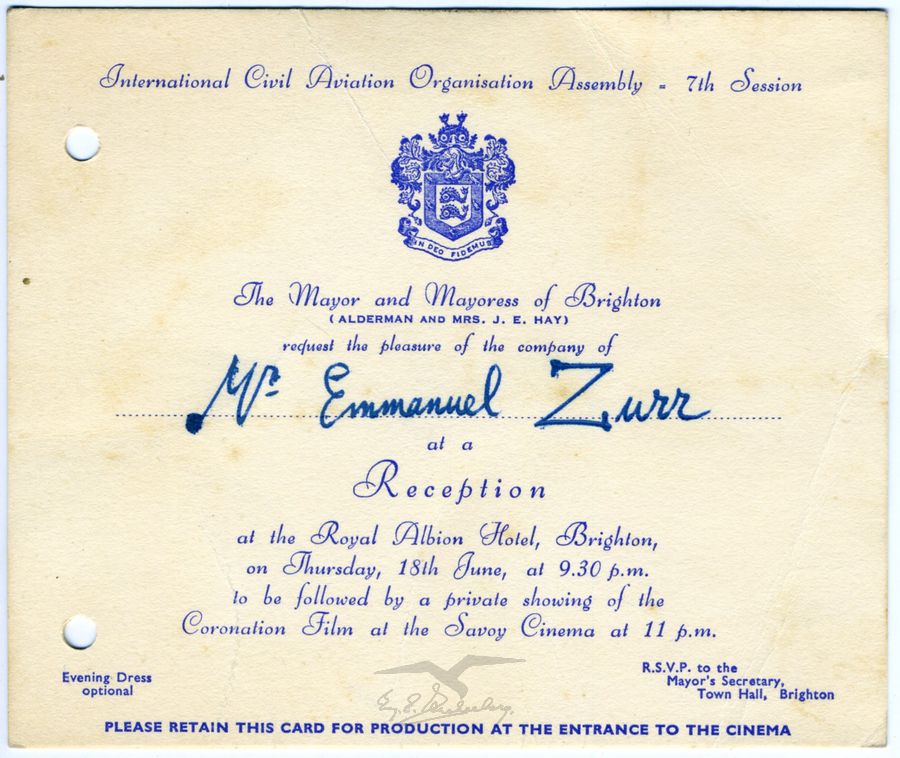 International Civil Aviation Organisation Assembly - 7th Session
IN DEO FIDEMUS
The Mayor and Mayoress of Brighton
(ALDERMAN AND MRS. J. E. HAY)
request the pleasure of the company of
Mr. Emmanuel Zurr
at a
Reception
at the Royal Albion Hotel, Brighton,
on Thursday, 18th June, at 9.30 p.m.
to be followed by a private showing of the
Coronation Film at the Savoy Cinema at 11 p.m.
Evening Dress
optional
R.S.V.P. to the
Mayor's Secretary,
Town Hall, Brighton
PLEASE RETAIN THIS CARD FOR PRODUCTION AT THE ENTRANCE TO THE CINEMA